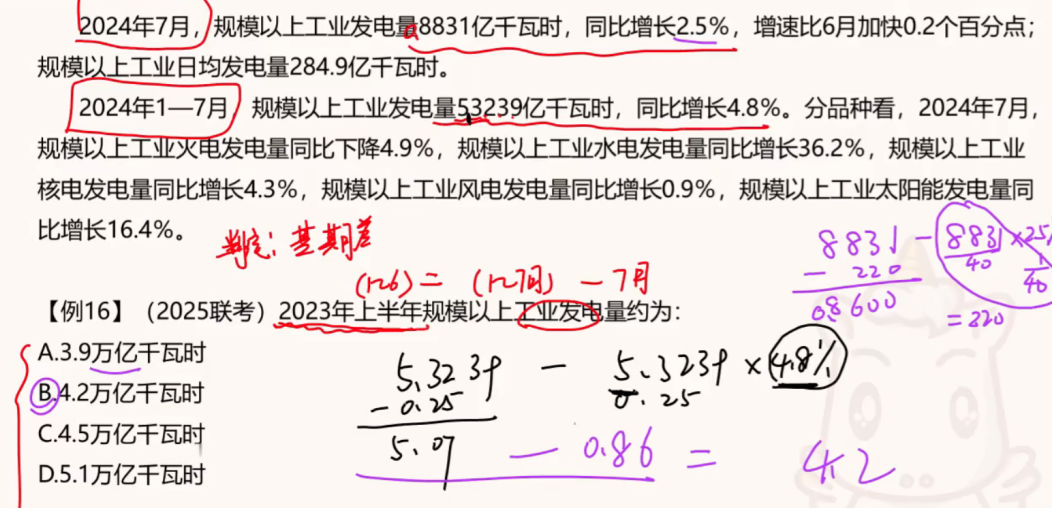 2024年7月，规模以上工业发电量8831亿千瓦时，同比增长2.5%，增速比6月加快0.2个百分点；
规模以上工业日均发电量284.9亿千瓦时。
2024年1—7月，规模以上工业发电量53239亿千瓦时，同比增长4.8%。分品种看，2024年7月，
规模以上工业火电发电量同比下降4.9%，规模以上工业水电发电量同比增长36.2%，规模以上工业
核电发电量同比增长4.3%，规模以上工业风电发电量同比增长0.9%，规模以上工业太阳能发电量同
比增长16.4%。
判定：基期差
(1-26) = (1-7月) - 7月
8831 - 8831/40 × 25% 1/40
- 220
8600
= 220
【例16】（2025联考）2023年上半年规模以上工业发电量约为：
A.3.9万亿千瓦时
B.4.2万亿千瓦时
C.4.5万亿千瓦时
D.5.1万亿千瓦时
5.3239 - 5.3239 × 4.8%
- 0.25 0.25
5.07 - 0.86 = 4.2